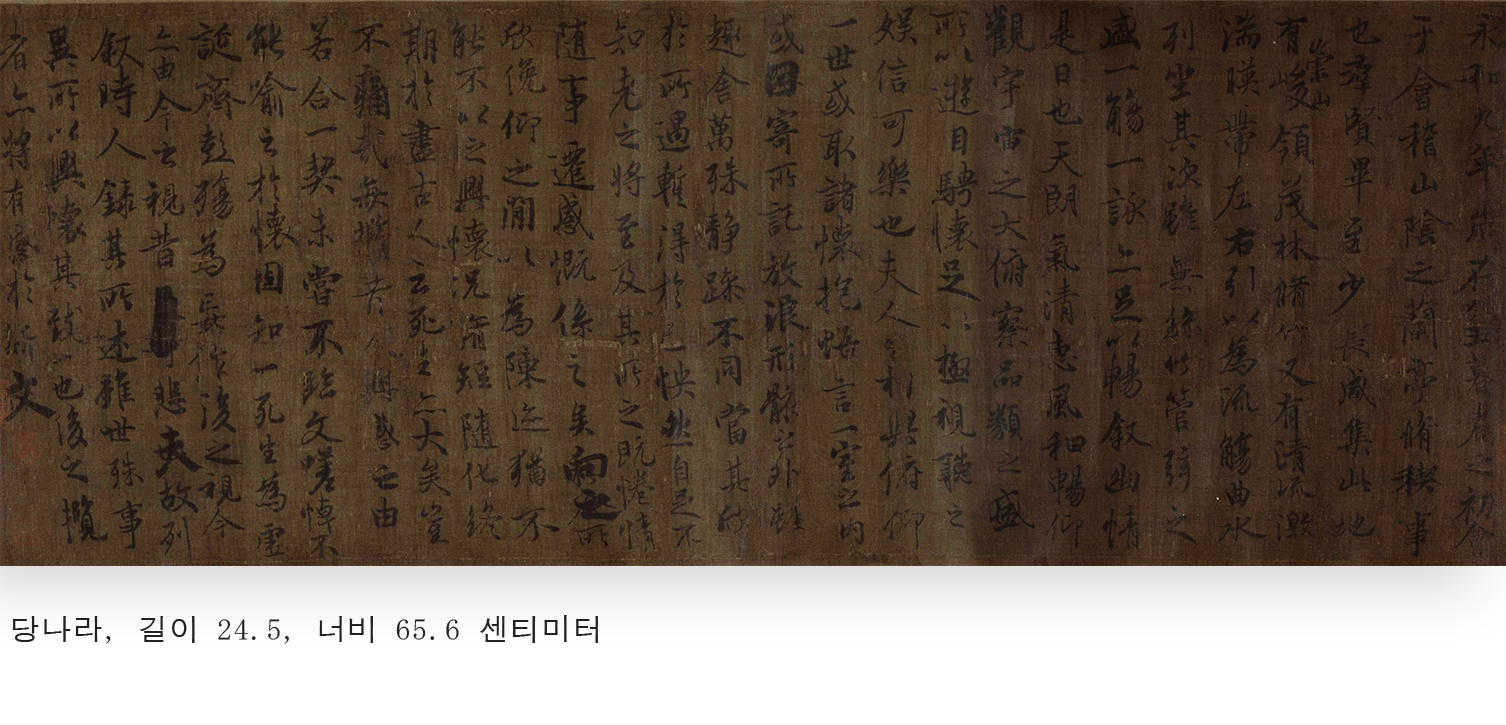 永和九年歲在癸丑暮春之初會
于會稽山陰之蘭亭脩稧事
也羣賢畢至少長咸集此地
有崇山峻領茂林脩竹又有清流激
湍暎帶左右引以為流觴曲水
列坐其次雖無絲竹管弦之
盛一觴一詠亦足以暢叙幽情
是日也天朗氣清惠風和暢仰
觀宇宙之大俯察品類之盛
所以遊目騁懷足以極視聽之
娛信可樂也夫人之相與俯仰
一世或取諸懷抱悟言一室之內
或因寄所託放浪形骸之外雖
趣舍萬殊靜躁不同當其欣
於所遇暫得於己怏然自足不
知老之將至及其所之既惓情
隨事遷感慨係之矣向之所
欣俛仰之間以為陳迹猶不
能不以之興懷況脩短隨化終
期於盡古人云死生亦大矣豈
不痛哉每攬昔人興感之由
若合一契未嘗不臨文嗟悼不
能喻之於懷固知一死生為虛
誕齊彭殤為妄作後之視今
亦由今之視昔 悲夫故列
叙時人錄其所述雖世殊事
異所以興懷其致一也後之攬
者亦將有感於斯文
당나라, 길이 24.5, 너비 65.6 센티미터